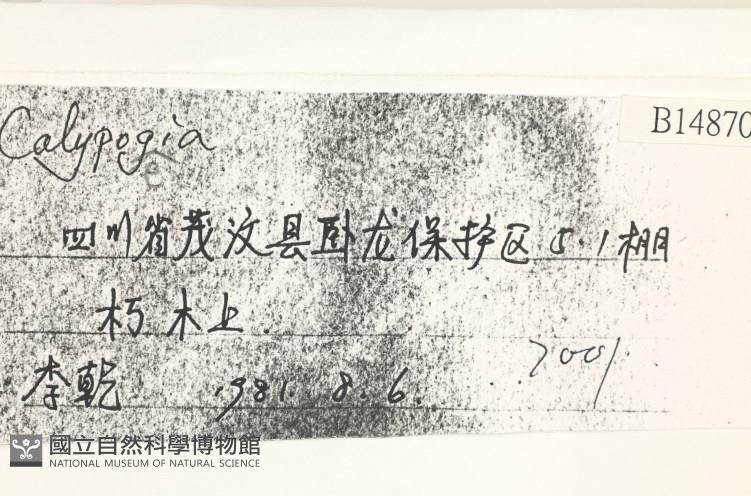 B14870
Calypogia
e
四川省茂汶县卧龙保护区 5.1棚
朽木上
7001
李乾 1981.8.6.
國立自然科學博物館
NATIONAL MUSEUM OF NATURAL SCIENCE